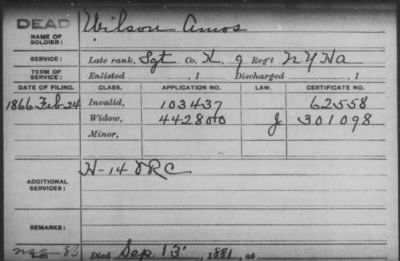 DEAD
Wilson Amos
NAME OF SOLDIER:
SERVICE: Late rank, Sgt Co. K. 9 Reg't N Y Ha
TERM OF SERVICE: Enlisted , 1 Discharged , 1
DATE OF FILING. CLASS. APPLICATION NO. LAW. CERTIFICATE NO.
1866 Feb 24 Invalid, 103437 62558
Widow, 442800 J 301098
Minor,
ADDITIONAL SERVICES: H-14 VRC
REMARKS:
Died Sep. 13, 1881, at